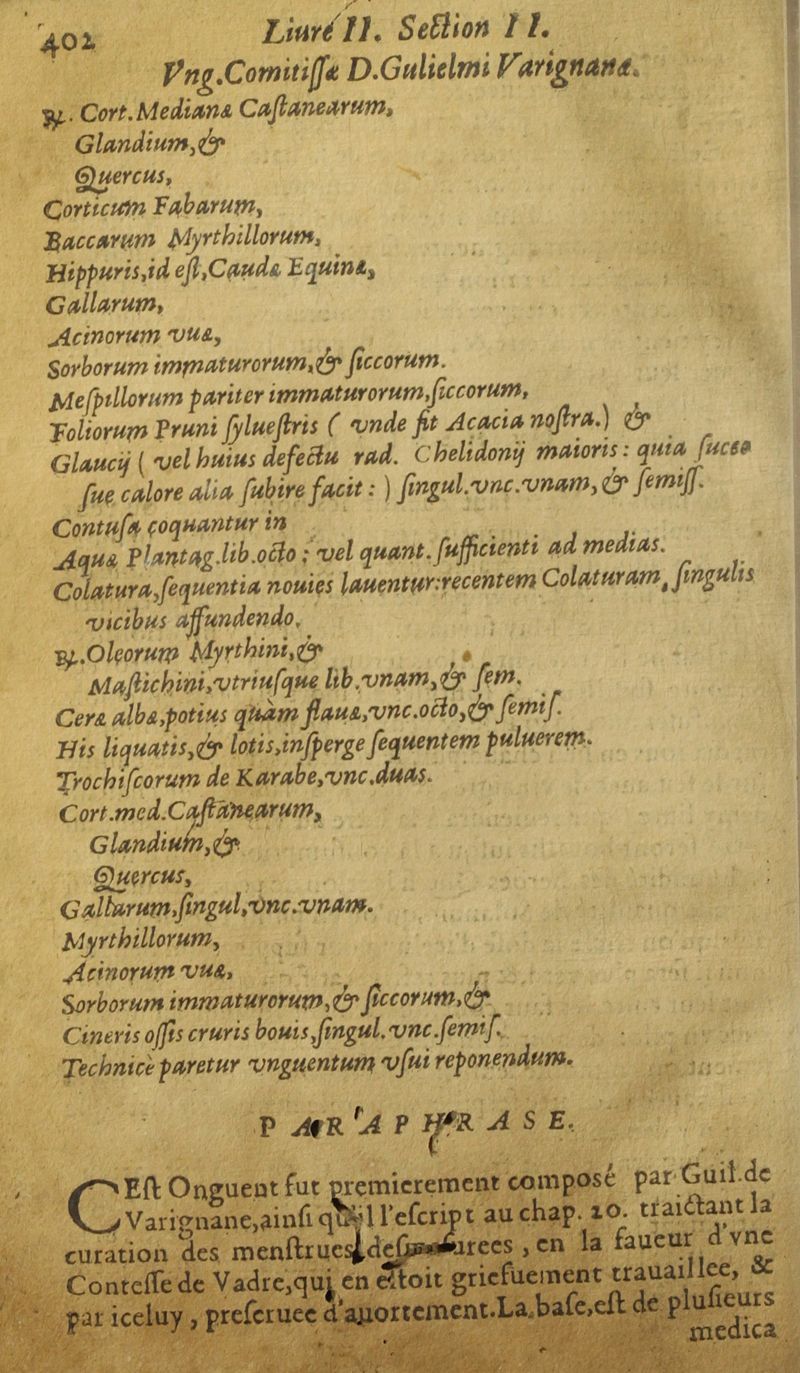 402 Liure II. Section II.
Vng. Comitissæ D. Gulielmi Varignanæ.
℞. Cort. Medianæ Castanearum,
Glandium, &
Quercus,
Corticum Fabarum,
Baccarum Myrthillorum,
Hippuris, id est, Caudæ Equinæ,
Gallarum,
Acinorum vuæ,
Sorborum immaturorum, & siccorum.
Mespillorum pariter immaturorum, siccorum,
Foliorum Pruni syluestris ( vnde fit Acacia nostra.) &
Glaucij ( vel huius defectu rad. Chelidonij maioris: quia succo
suo calore alia subire facit: ) singul. vnc. vnam, & semiss.
Contusa coquantur in
Aquæ Plantag. lib. octo; vel quant. sufficienti ad medias.
Colatura, sequentia nouies lauentur: recentem Colaturam, singulis
vicibus affundendo.
℞. Oleorum Myrthini, &
Mastichini, vtriusque lib. vnam, & sem.
Ceræ albæ, potius quàm flauæ, vnc. octo, & semis.
His liquatis, & lotis, insperge sequentem puluerem.
Trochiscorum de Karabe, vnc. duas.
Cort. med. Castanearum,
Glandium, &
Quercus,
Gallarum, singul, vnc. vnam.
Myrthillorum,
Acinorum vuæ,
Sorborum immaturorum, & siccorum, &
Cineris ossis cruris bouis, singul. vnc. semis.
Technicè paretur vnguentum vsui reponendum.
PARAPHRASE.
CEst Onguent fut premierement composé par Guil. de
Varignane, ainsi qu'il l'escript au chap. 10. traictant la
curation des menstrues, en la faueur d'vne
Contesse de Vadre, qui en estoit griefuement trauaillee, &
par iceluy, preseruee d'auortement. La base, est de plusieurs
medica